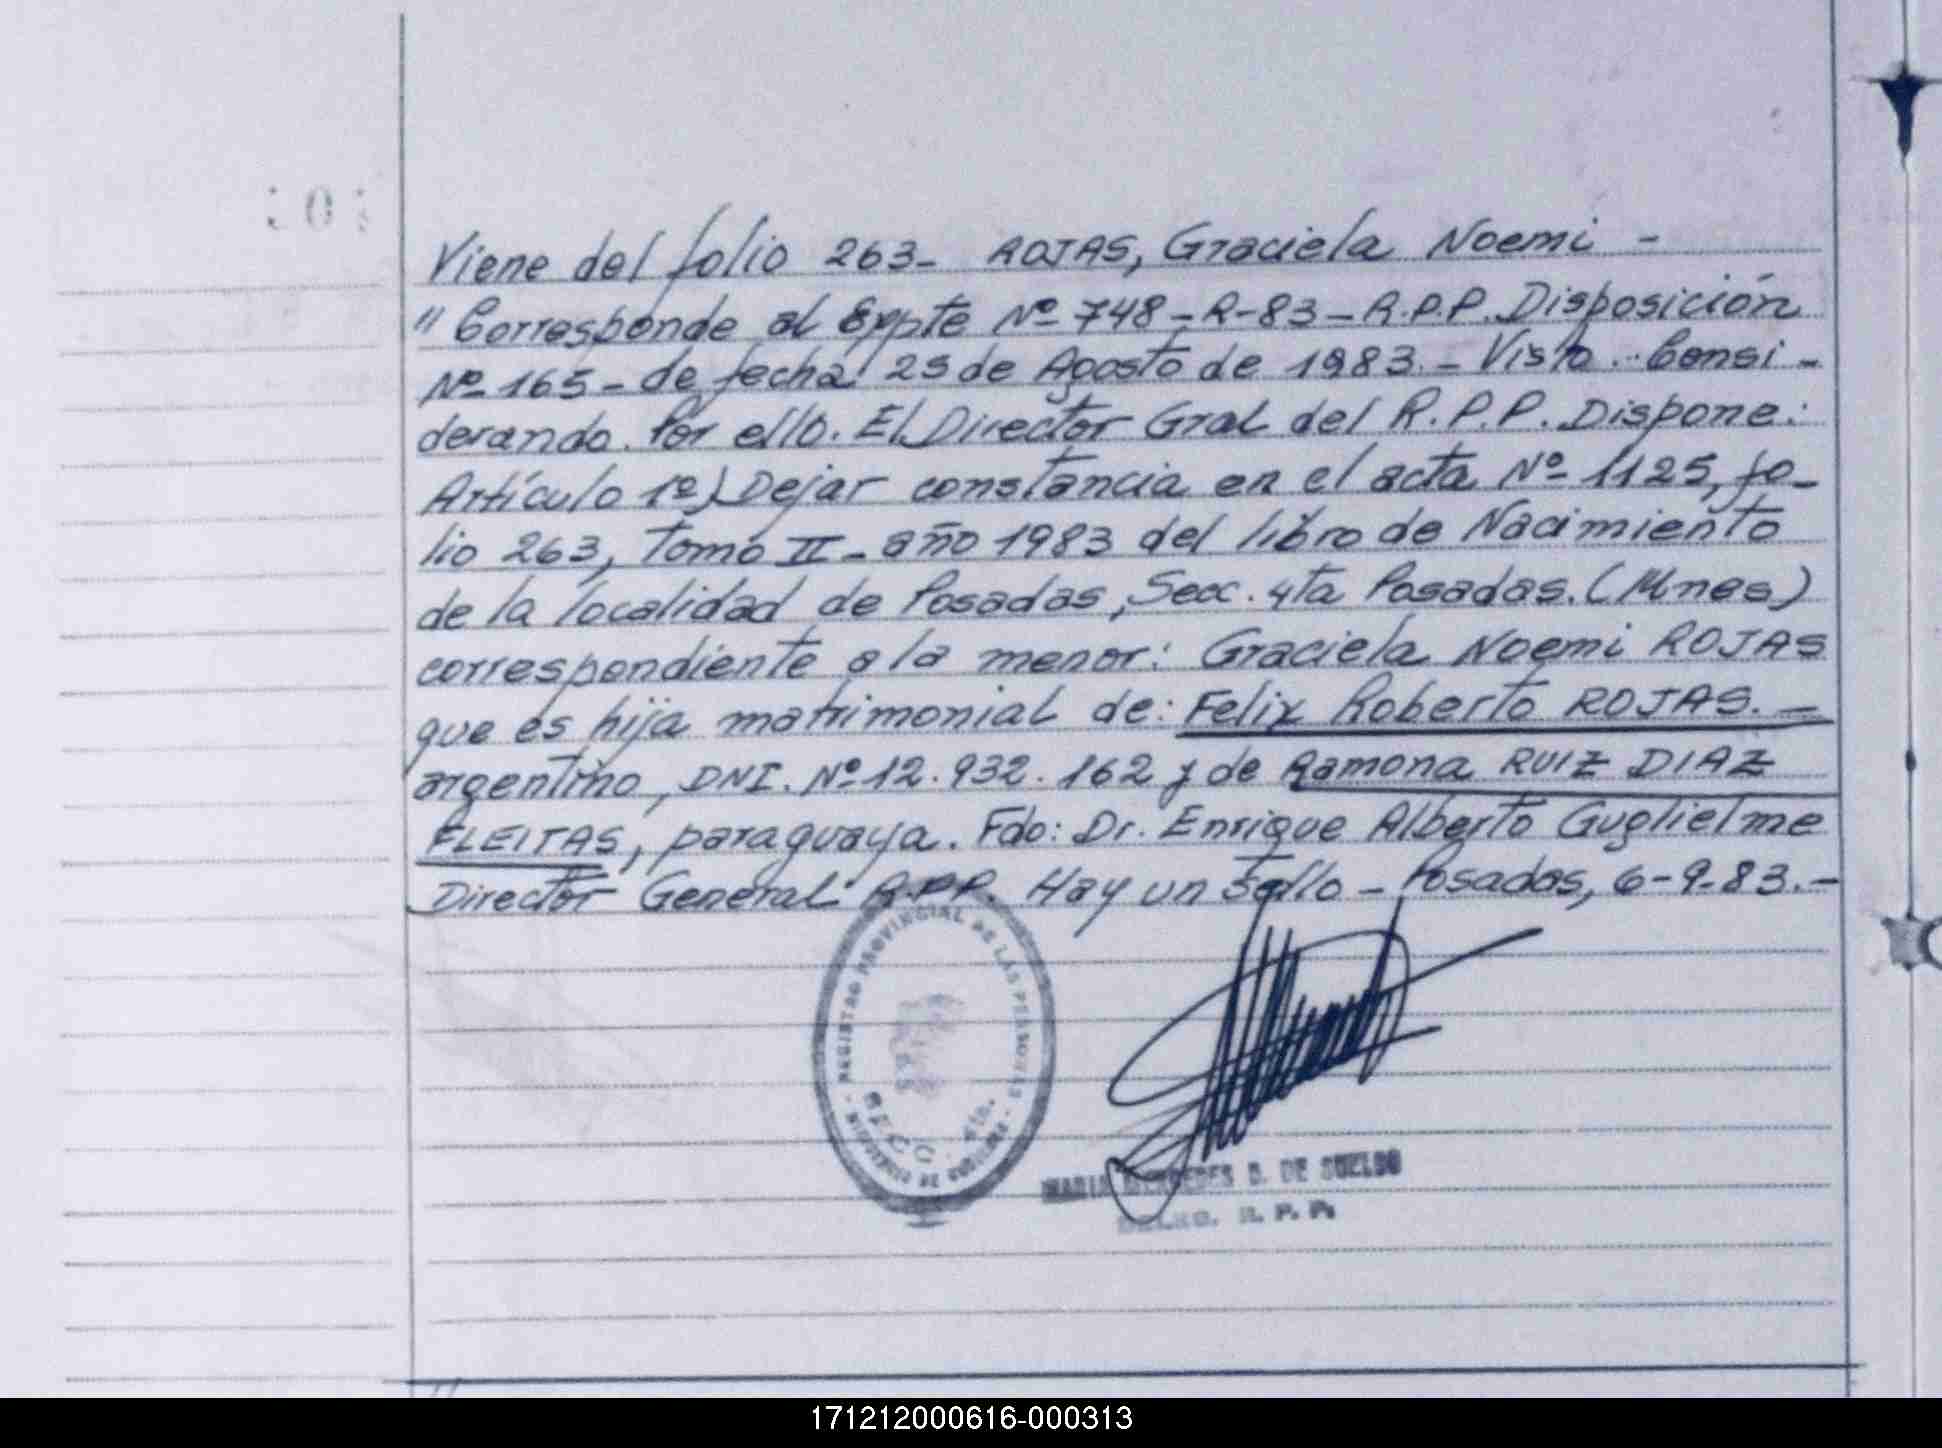 Viene del folio 263- ROJAS, Graciela Noemi -
"Corresponde al Expte Nº 748-R-83-R.P.P. Disposición
Nº 165- de fecha 25 de Agosto de 1983.- Visto.. Consi-
derando. Por ello. El Director Gral del R.P.P. Dispone:
Artículo 1º) Dejar constancia en el acta Nº 1125, fo-
lio 263, Tomo II- año 1983 del libro de Nacimiento
de la localidad de Posadas, Secc. 4ta Posadas. (Mnes)
correspondiente a la menor: Graciela Noemi ROJAS
que es hija matrimonial de: Felix Roberto ROJAS.-
argentino, DNI. Nº 12.932.162 y de Ramona RUIZ DIAZ
FLEITAS, paraguaya. Fdo: Dr. Enrique Alberto Guglielme
Director General R.P.P. Hay un Sello - Posadas, 6-9-83.-
REGISTRO PROVINCIAL DE LAS PERSONAS
SECC. 4ta.
MARIA MERCEDES D. DE SUELDO
R. P. P.
171212000616-000313